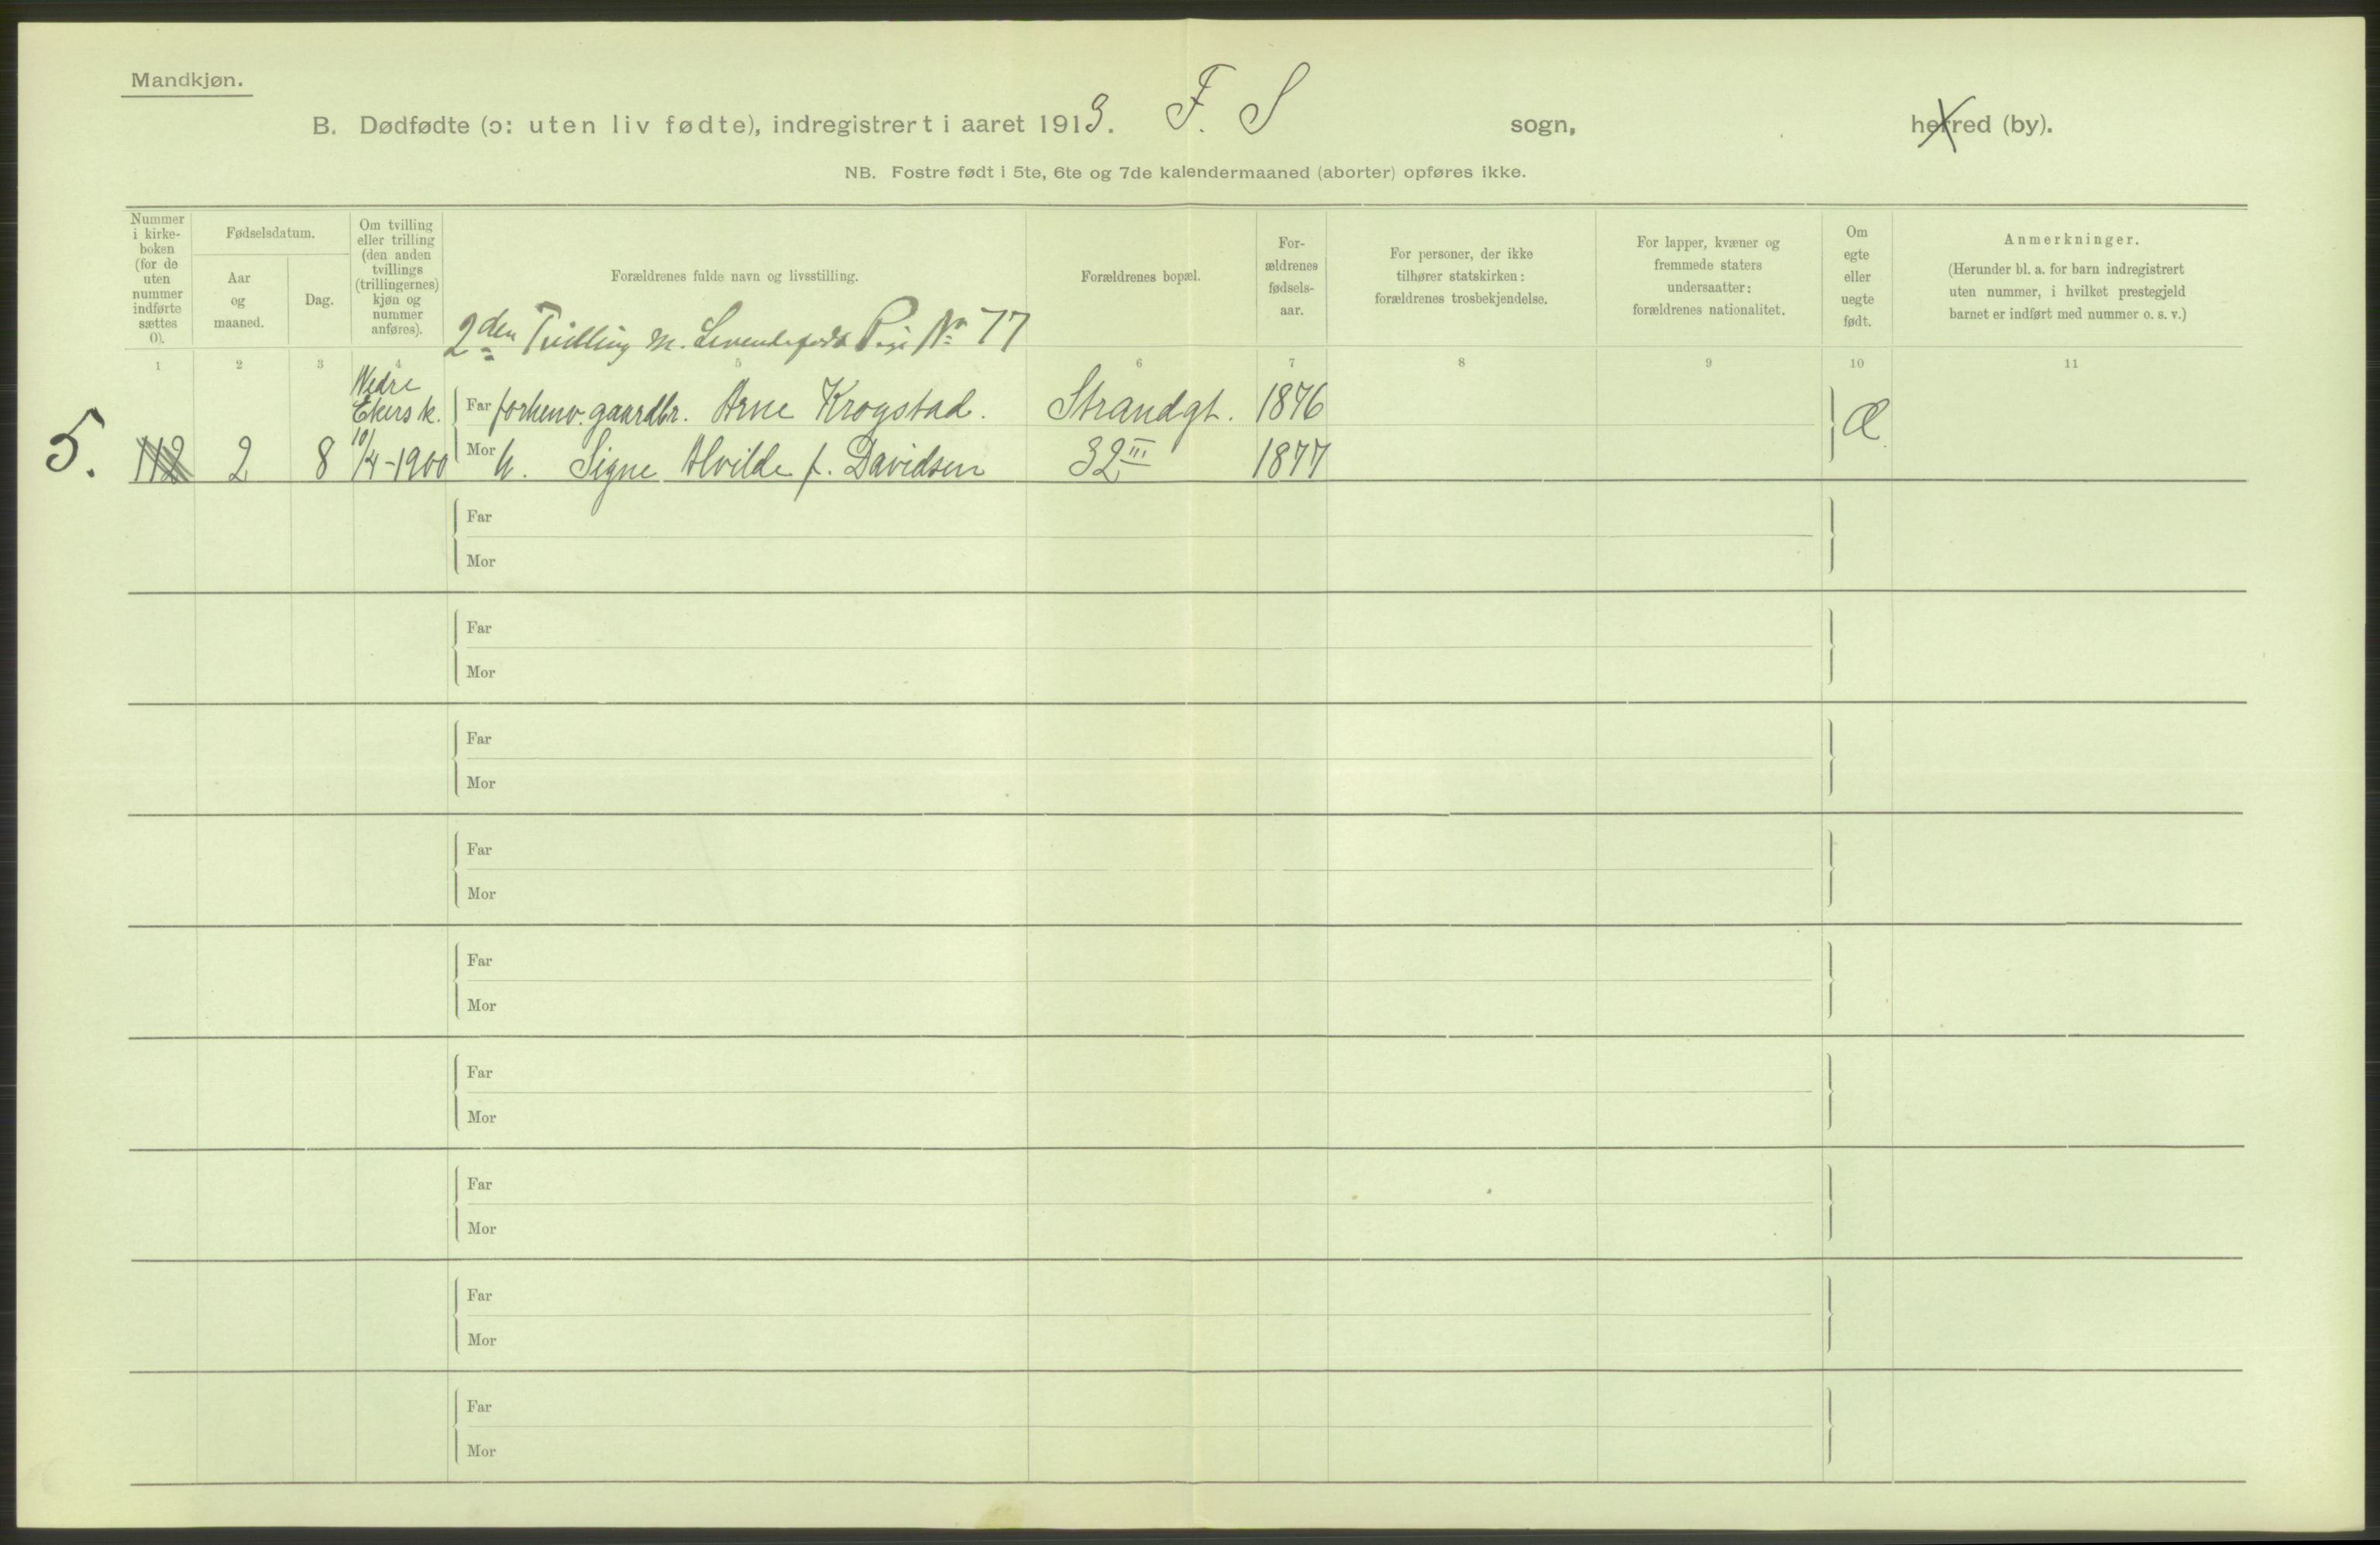 Mandkjøn.
B. Dødfødte (ɔ: uten liv fødte), indregistrert i aaret 1913. F. S sogn, herred (by).
NB. Fostre født i 5te, 6te og 7de kalendermaaned (aborter) opføres ikke.
Nummer
i kirke-
boken
(for de
uten
nummer
indførte
sættes
0).
Fødselsdatum.
Aar
og
maaned.
Dag.
Om tvilling
eller trilling
(den anden
tvillings
(trillingernes)
kjøn og
nummer
anføres).
Forældrenes fulde navn og livsstilling.
Forældrenes bopæl.
For-
ældrenes
fødsels-
aar.
For personer, der ikke
tilhører statskirken:
forældrenes trosbekjendelse.
For lapper, kvæner og
fremmede staters
undersaatter:
forældrenes nationalitet.
Om
egte
eller
uegte
født.
Anmerkninger.
(Herunder bl. a. for barn indregistrert
uten nummer, i hvilket prestegjeld
barnet er indført med nummer o. s. v.)
2den Tvilling m. Levendefødt Pige No 77
1 2 3 4 5 6 7 8 9 10 11
Nedre
Ekers k. Far forhenv. gaardbr. Arne Krogstad. Strandgt. 1876 Æ
5. 112 2 8 10/4-1900 Mor h. Signe Alvilde f. Davidsen 32 III 1877
Far
Mor
Far
Mor
Far
Mor
Far
Mor
Far
Mor
Far
Mor
Far
Mor
Far
Mor
Far
Mor